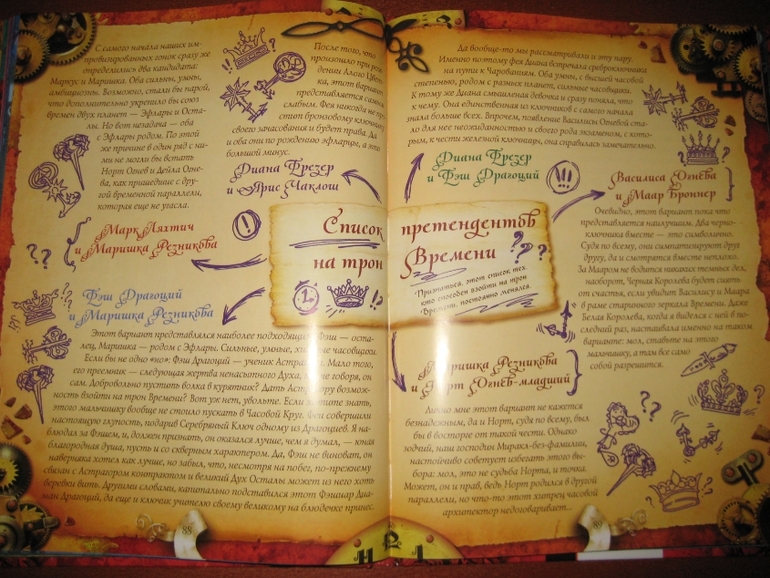 С самого начала наших им-
провизированных гонок сразу же
определились два кандидата:
Маркус и Маришка. Оба сильны, умны,
амбициозны. Возможно, стали бы парой,
что дополнительно укрепило бы союз
времен двух планет — Эфлары и Оста-
лы. Но вот незадача — оба
с Эфлары родом. По этой
же причине в один ряд с ни-
ми не могли бы встать
Норт Огнев и Дейла Огне-
ва, как пришедшие с дру-
гой временной параллели,
которая еще не угасла.
После того, что
произошло при рас-
Алого Цвет-
ка, этот вариант
представляется самым
слабым. Фея никогда не
ступит бронзовому ключнику
своего зачасования и будет права. Да
и оба они по рождению эфларцы, а это
большой минус.
Диана Фрезер
и Ярис Чаклош
Марк Ляхтич
и Маришка Резникова
Фэш Драгоций
и Маришка Резникова
Список претендентов
на трон Времени
Признаться, этот список тех,
кто способен взойти на трон
Времени, постоянно менялся.
Этот вариант представлялся наиболее подходящим. Фэш — оста-
лец, Маришка — родом с Эфлары. Сильные, умные, хи часовщики.
Если бы не одно «но»: Фэш Драгоций — ученик Астра Мало того,
его преемник — следующая жертва ненасытного Духа, говоря, он
сам. Добровольно пустить волка в курятник? Дать Астра возмож-
ность взойти на трон Времени? Вот уж нет, увольте. Если хотите знать,
этого мальчишку вообще не стоило пускать в Часовой Круг. Феи совершили
настоящую глупость, подарив Серебряный Ключ одному из Драгоциев. Я на-
блюдала за Фэшем, и, должен признать, он оказался лучше, чем я думал, — юная
благородная душа, пусть и со скверным характером. Да, Фэш не виноват, он
наверняка хотел как лучше, но забыл, что, несмотря на побег, по-прежнему
связан с Астрагором контрактом и великий Дух Осталы может из него хоть
веревки вить. Другими словами, капитально подставился этот Фэшиар Диа-
ман Драгоций, да еще и ключик учителю своему великому на блюдечке принес.
88
Да вообще-то мы рассматривали и эту пару.
Именно поэтому фея Диана встречала среброключника
на пути к Чарованиям. Оба умны, с высшей часовой
степенью, родом с разных планет, сильные часовщики.
К тому же Диана смышленая девочка и сразу поняла, что
к чему. Она единственная из ключников с самого начала
знала больше всех. Впрочем, появление Василисы Огневой ста-
ло для нее неожиданностью и своего рода экзаменом, с кото-
рым, к чести железной ключницы, она справилась замечательно.
Диана Фрезер
и Фэш Драгоций
Василиса Огнева
и Маар Броннер
Очевидно, этот вариант пока что
представляется наилучшим. Два черно-
ключника вместе — это символично.
Судя по всему, они симпатизируют друг
другу, да и смотрятся вместе неплохо.
За Мааром не водится никаких темных дел,
наоборот, Черная Королева будет сиять
от счастья, если увидит Василису и Маара
в раме старинного зеркала Времени. Даже
Белая Королева, когда я виделся с ней в по-
следний раз, настаивала именно на таком
варианте: мол, ставьте на этого
мальчишку, а там все само
собой разрешится.
Маришка Резникова
и Норт Огнев-младший
Лично мне этот вариант не кажется
безнадежным, да и Норт, судя по всему, был
бы в восторге от такой чести. Однако
зодчий, наш господин Миракл-без-фамилии,
настойчиво советует избегать этого вы-
бора: мол, это не судьба Норта, и точка.
Может, он и прав, ведь Норт родился в другой
параллели, но что-то этот хитрец часовой
архитектор недоговаривает...
89